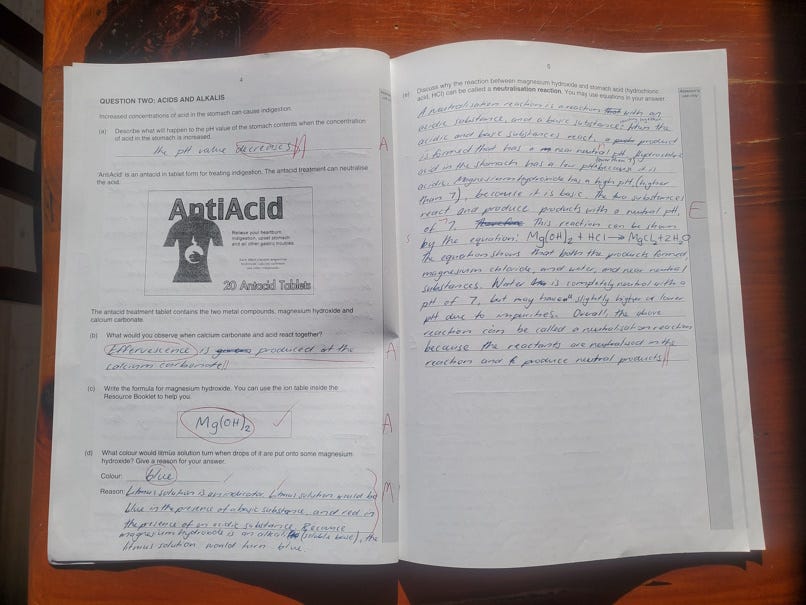 4
QUESTION TWO: ACIDS AND ALKALIS
Increased concentrations of acid in the stomach can cause indigestion.
(a) Describe what will happen to the pH value of the stomach contents when the concentration
of acid in the stomach is increased.
the pH value decreases
A
'AntiAcid' is an antacid in tablet form for treating indigestion. The antacid treatment can neutralise
the acid.
AntiAcid
Relieve your heartburn,
indigestion, upset stomach
and all other gastric troubles.
20 Antacid Tablets
The antacid treatment tablet contains the two metal compounds, magnesium hydroxide and
calcium carbonate.
(b) What would you observe when calcium carbonate and acid react together?
Effervescence is produced at the
calcium carbonate
A
(c) Write the formula for magnesium hydroxide. You can use the ion table inside the
Resource Booklet to help you.
Mg(OH)2
A
(d) What colour would litmus solution turn when drops of it are put onto some magnesium
hydroxide? Give a reason for your answer.
Colour: blue
Reason: Litmus solution is an indicator. Litmus solution would be
blue in the presence of a basic substance, and red in
the presence of an acidic substance. Because
magnesium hydroxide is an alkali (soluble base), the
litmus solution would turn blue.
M
5
(e) Discuss why the reaction between magnesium hydroxide and stomach acid (hydrochloric
acid, HCl) can be called a neutralisation reaction. You may use equations in your answer.
A neutralisation reaction is a reaction with an
acidic substance, and a basic substance. When the
acidic and basic substances react, a product
is formed that has a near neutral pH. Hydrochloric
acid in the stomach has a low pH (lower than 7) because it is
acidic. Magnesium hydroxide has a high pH, (higher
than 7), because it is basic. The two substances
react and produce products with a neutral pH,
of ~7. This reaction can be shown
by the equation: Mg(OH)2 + HCl → MgCl2 + 2H2O
The equation shows that both the products formed,
magnesium chloride, and water, and near neutral
substances. Water is completely neutral with a
pH of 7, but may have slightly higher or lower
pH due to impurities. Overall, the above
reaction can be called a neutralisation reaction
because the reactants are neutralised in the
reaction and produce neutral products
E